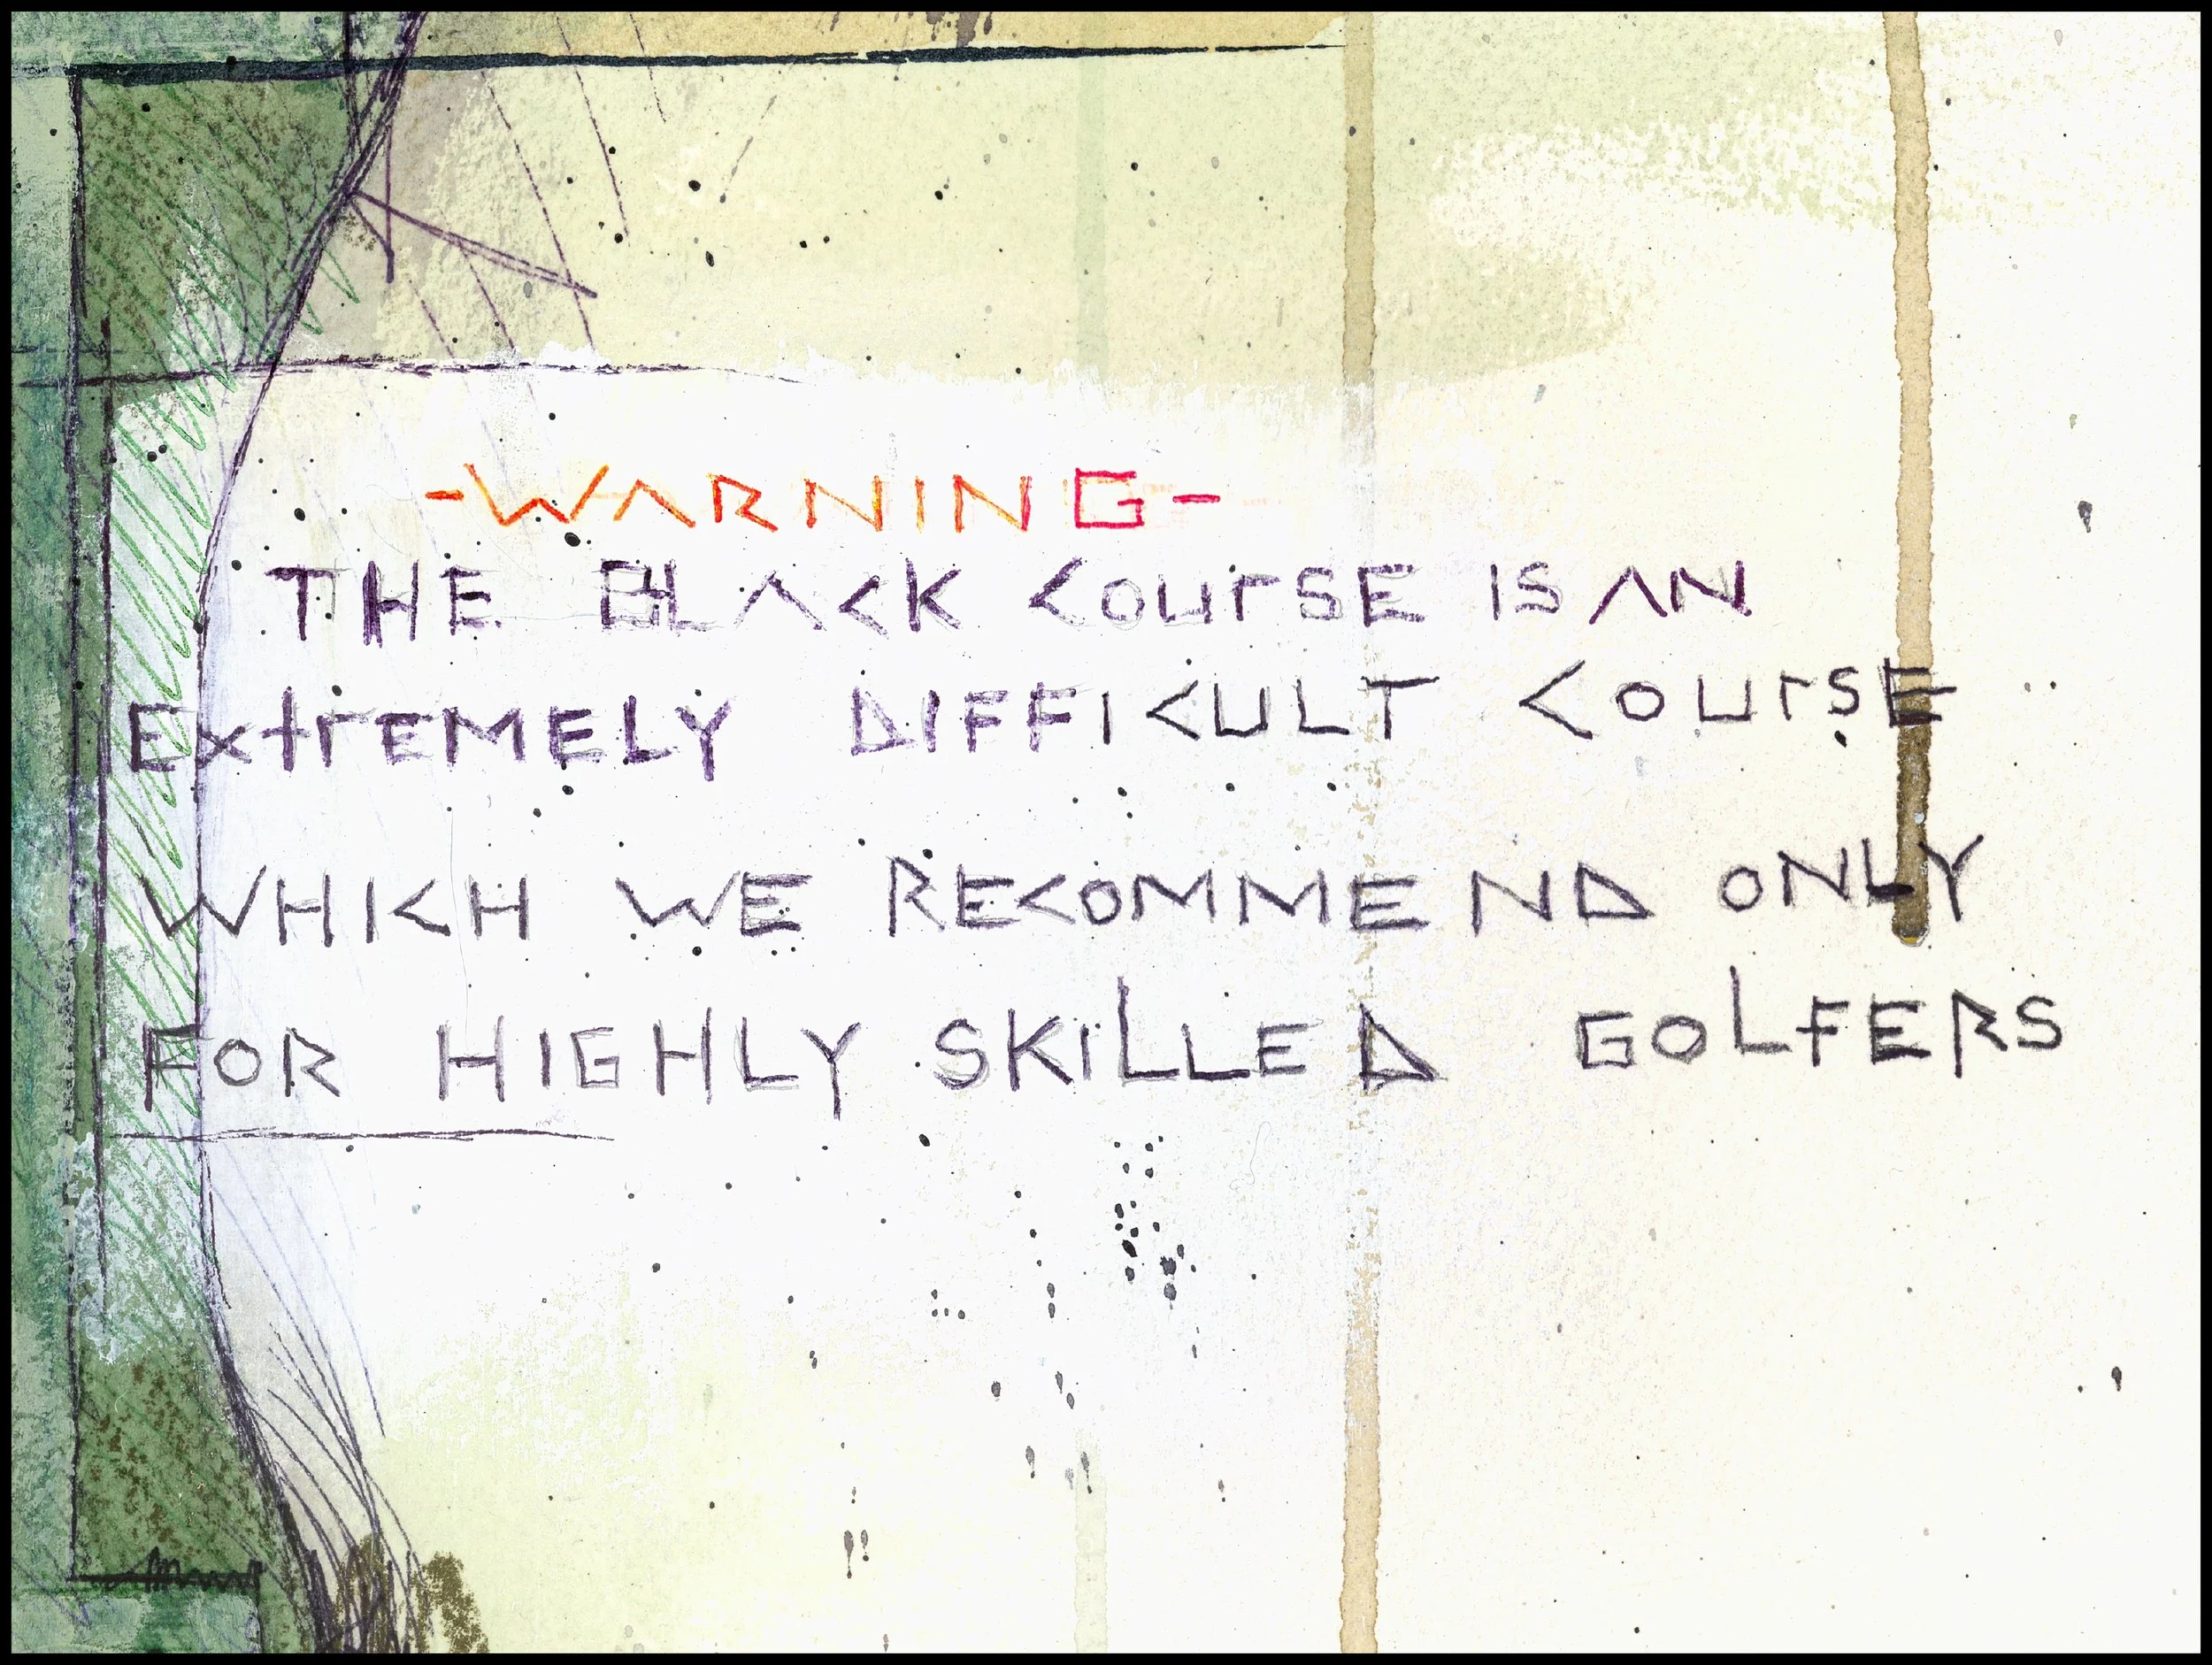 -WARNING-
THE BLACK COURSE IS AN
EXTREMELY DIFFICULT COURSE
WHICH WE RECOMMEND ONLY
FOR HIGHLY SKILLED GOLFERS